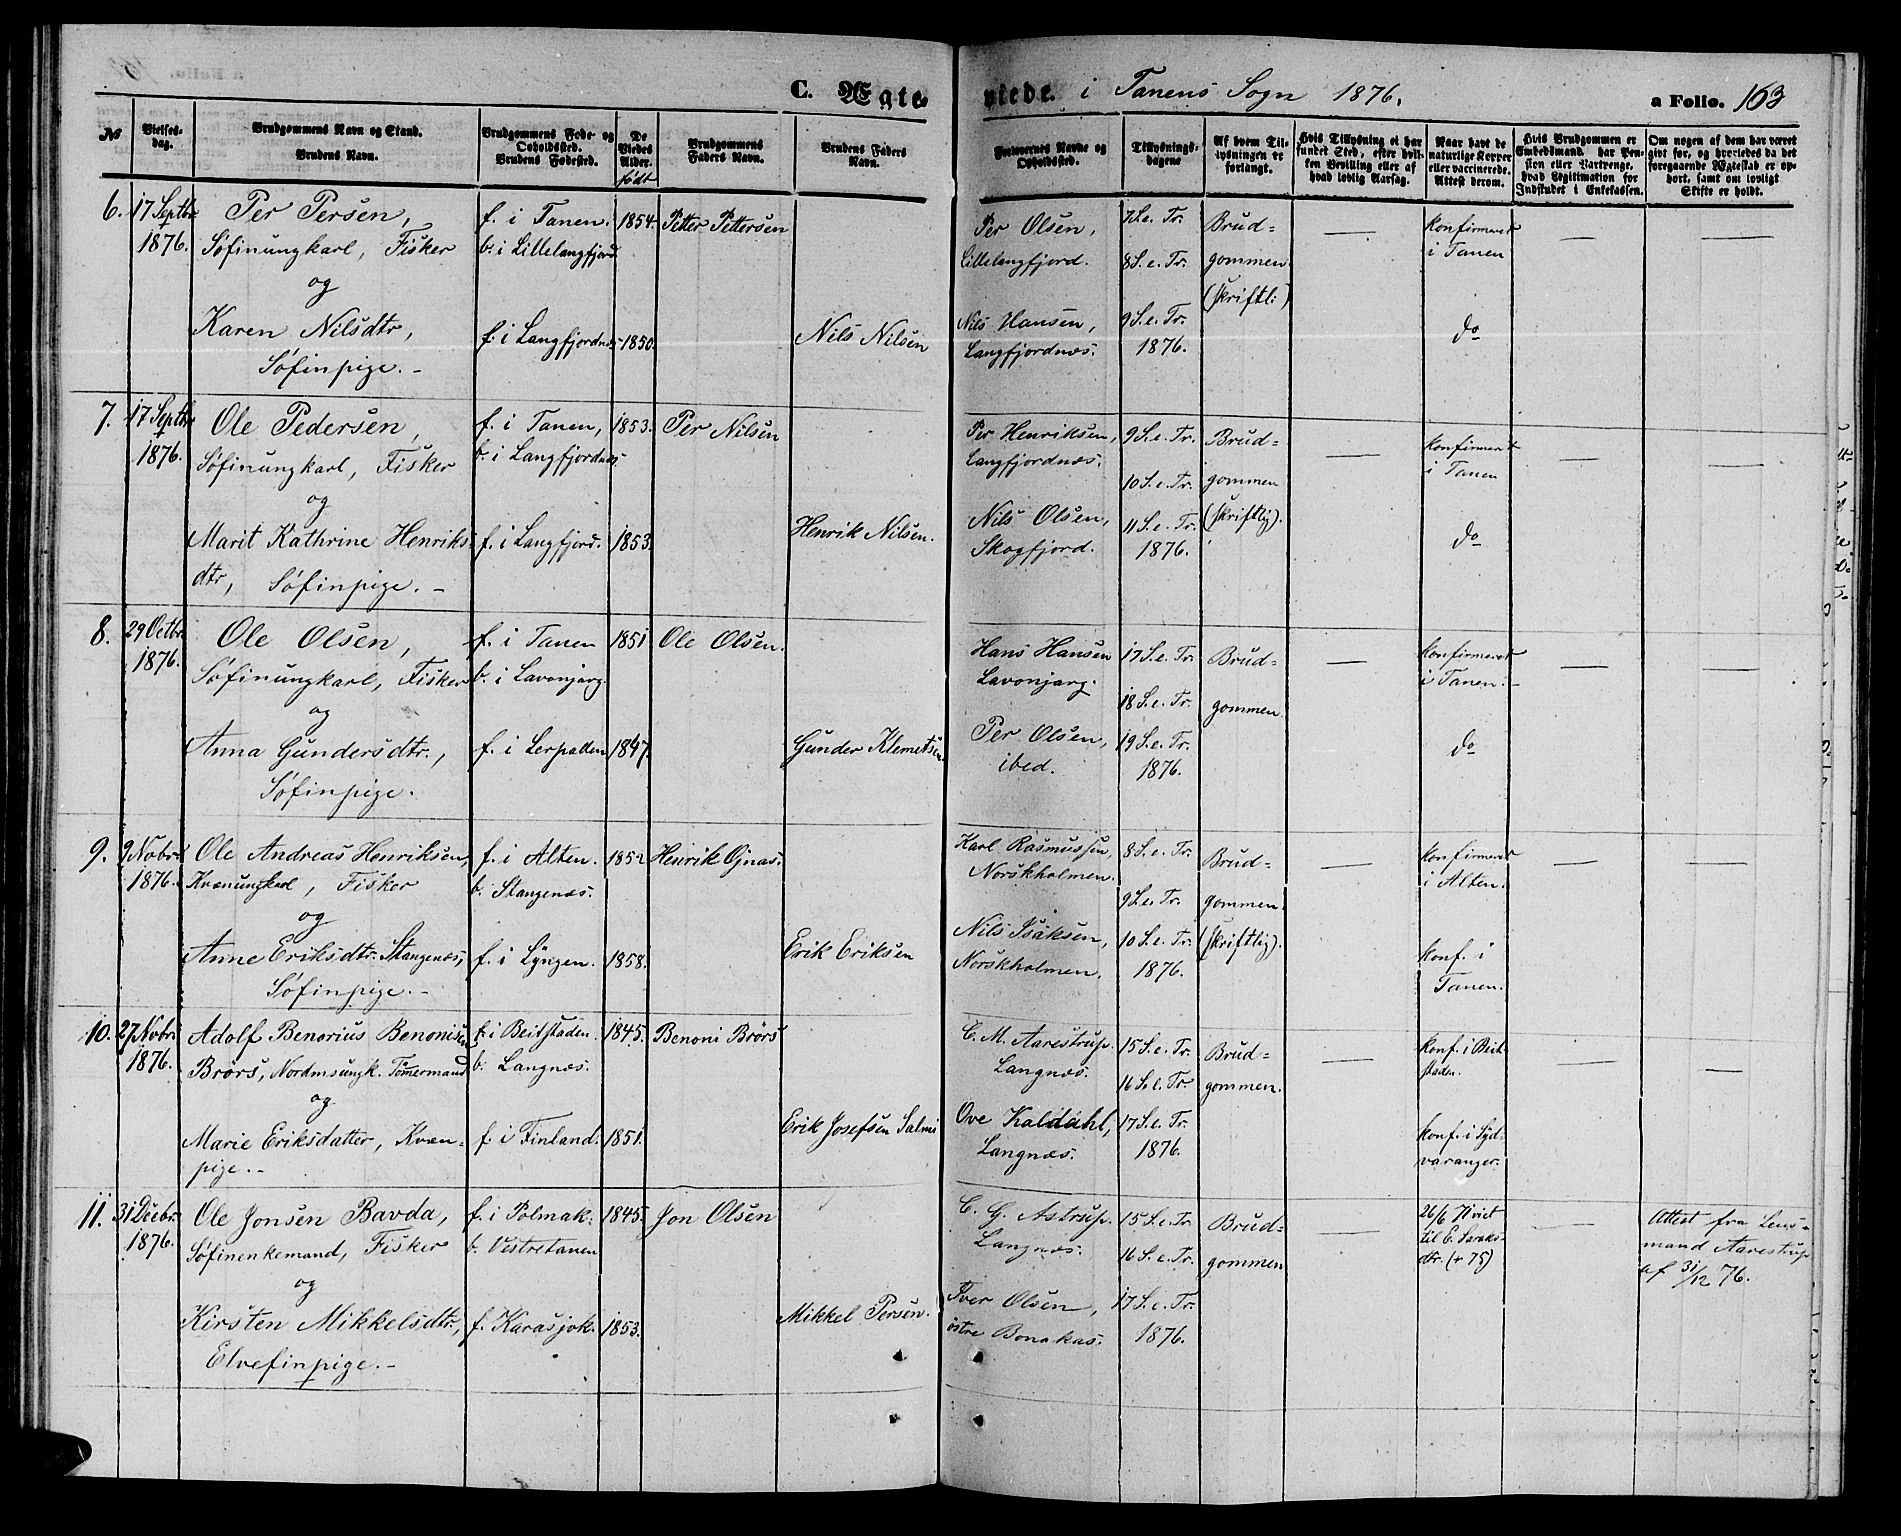 C. Ægte
viede. i Tanens Sogn 1876.
a Folio. 163
№
Vielses-
dag.
Brudgommens Navn og Stand.
Brudens Navn.
Brudgommens Føde- og
Opholdssted.
Brudens Fødested.
De
Viedes
Alder.
født
Brudgommens
Faders Navn.
Brudens Faders
Navn.
Forlovernes Navne og
Opholdssted.
Tillysnings-
dagene
Af hvem Til-
lysningen er
forlangt.
Hvis Tillysning ei har
fundet Sted, efter hvil-
ken Bevilling eller af
hvad lovlig Aarsag.
Naar havt de
naturlige Kopper
eller vaccinerede.
Attest derom.
Hvis Brudgommen er
Embedsmand, har Pen-
sion eller Vartpenge,
hvad Legitimation for
Indskudet i Enkekassen.
Om nogen af dem har været
gift før, og hvorledes da det
foregaaende Ægteskab er op-
hørt, samt om lovligt
Skifte er holdt.
6.
17 Septbr
1876.
Per Persen,
Søfinungkarl, Fisker
og
Karen Nilsdtr,
Søfinpige. –
f. i Tanen.
b. i Lillelangfjord.
f. i Langfjordnæs
1854.
1850.
Petter Pettersen
Nils Nilsen
Per Olsen,
Lillelangfjord.
Nils Hansen,
Langfjordnæs.
7 S. e. Tr.
8 S. e. Tr.
9 S. e. Tr.
1876.
Brud=
gommen
(skriftl:)
—
konfirmeret
i Tanen
do
—
—
7.
17 Septbr
1876.
Ole Pedersen,
Søfinungkarl, Fisker
og
Marit Kathrine Henriks-
dtr, Søfinpige. –
f. i Tanen,
b. i Langfjordnæs.
f. i Langfjord.
1853.
1853.
Per Nilsen
Henrik Nilsen.
Per Henriksen,
Langfjordnæs.
Nils Olsen,
Skogfjord.
9 S. e. Tr.
10 S. e. Tr.
11 S. e. Tr.
1876.
Brud=
gommen
(skriftlig).
—
konfirmeret
i Tanen
do
—
—
8.
29 Octbr.
1876.
Ole Olsen,
Søfinungkarl, Fisker
og
Anna Gundersdtr.,
Søfinpige.
f. i Tanen
b. i Lavonjarg.
f. i Lerpollen
1851
1847.
Ole Olsen.
Gunder Klemetsen
Hans Hansen
Lavonjarg.
Per Olsen,
ibed.
17 S. e. Tr.
18 S. e. Tr.
19 S. e. Tr.
1876.
Brud=
gommen.
—
konfirmeret
i Tanen. –
do
—
—
9.
9 Nobr.
1876.
Ole Andreas Henriksen,
Kvænungkarl, Fisker
og
Anne Eriksdtr. Stangenæs,
Søfinpige. –
f. i Alten.
b. Stangenæs.
f. i Lyngen.
1852
1858.
Henrik Ojnas.
Erik Eriksen
Karl Rasmussen,
Norskholmen.
Nils Isaksen,
Norskholmen.
8 S. e. Tr.
9 S. e. Tr.
10 S. e. Tr.
1876.
Brud=
gommen.
(skriftlig).
—
konfirmeret
i Alten.
konf. i
Tanen.
—
—
10.
27 Nobr.
1876.
Adolf Benorius Benonisen
Brørs, Nordmsungk. Tømermand
og
Marie Eriksdatter, Kvæn-
pige. –
f. i Beitstaden.
b. Langnæs.
f. i Finland.
1845.
1851.
Benoni Brørs
Erik Josefsen Salmi
C. M. Aarestrup.
Langnæs.
Ove Kaldahl,
Langnæs.
15 S. e. Tr.
16 S. e. Tr.
17 S. e. Tr.
1876.
Brud=
gommen.
—
konf. i Beit-
staden.
konf. i Syd-
varanger.
—
—
11.
31 Decbr.
1876.
Ole Jonsen Bavda,
Søfinenkemand, Fisker
og
Kirsten Mikkelsdtr,
Elvefinpige. –
f. i Polmak.
b. Vestretanen
f. Karasjok.
1845.
1853.
Jon Olsen
Mikkel Persen.
C. G. Astrup.
Langnæs.
Iver Olsen,
østre Bonakas.
15 S. e. Tr.
16 S. e. Tr.
17 S. e. Tr.
1876.
Brud=
gommen
—
26/6 71 viet
til E. Saraks-
dtr. (+ 75)
—
Attest fra Lens-
mand Aarestrup
af 31/12 76.